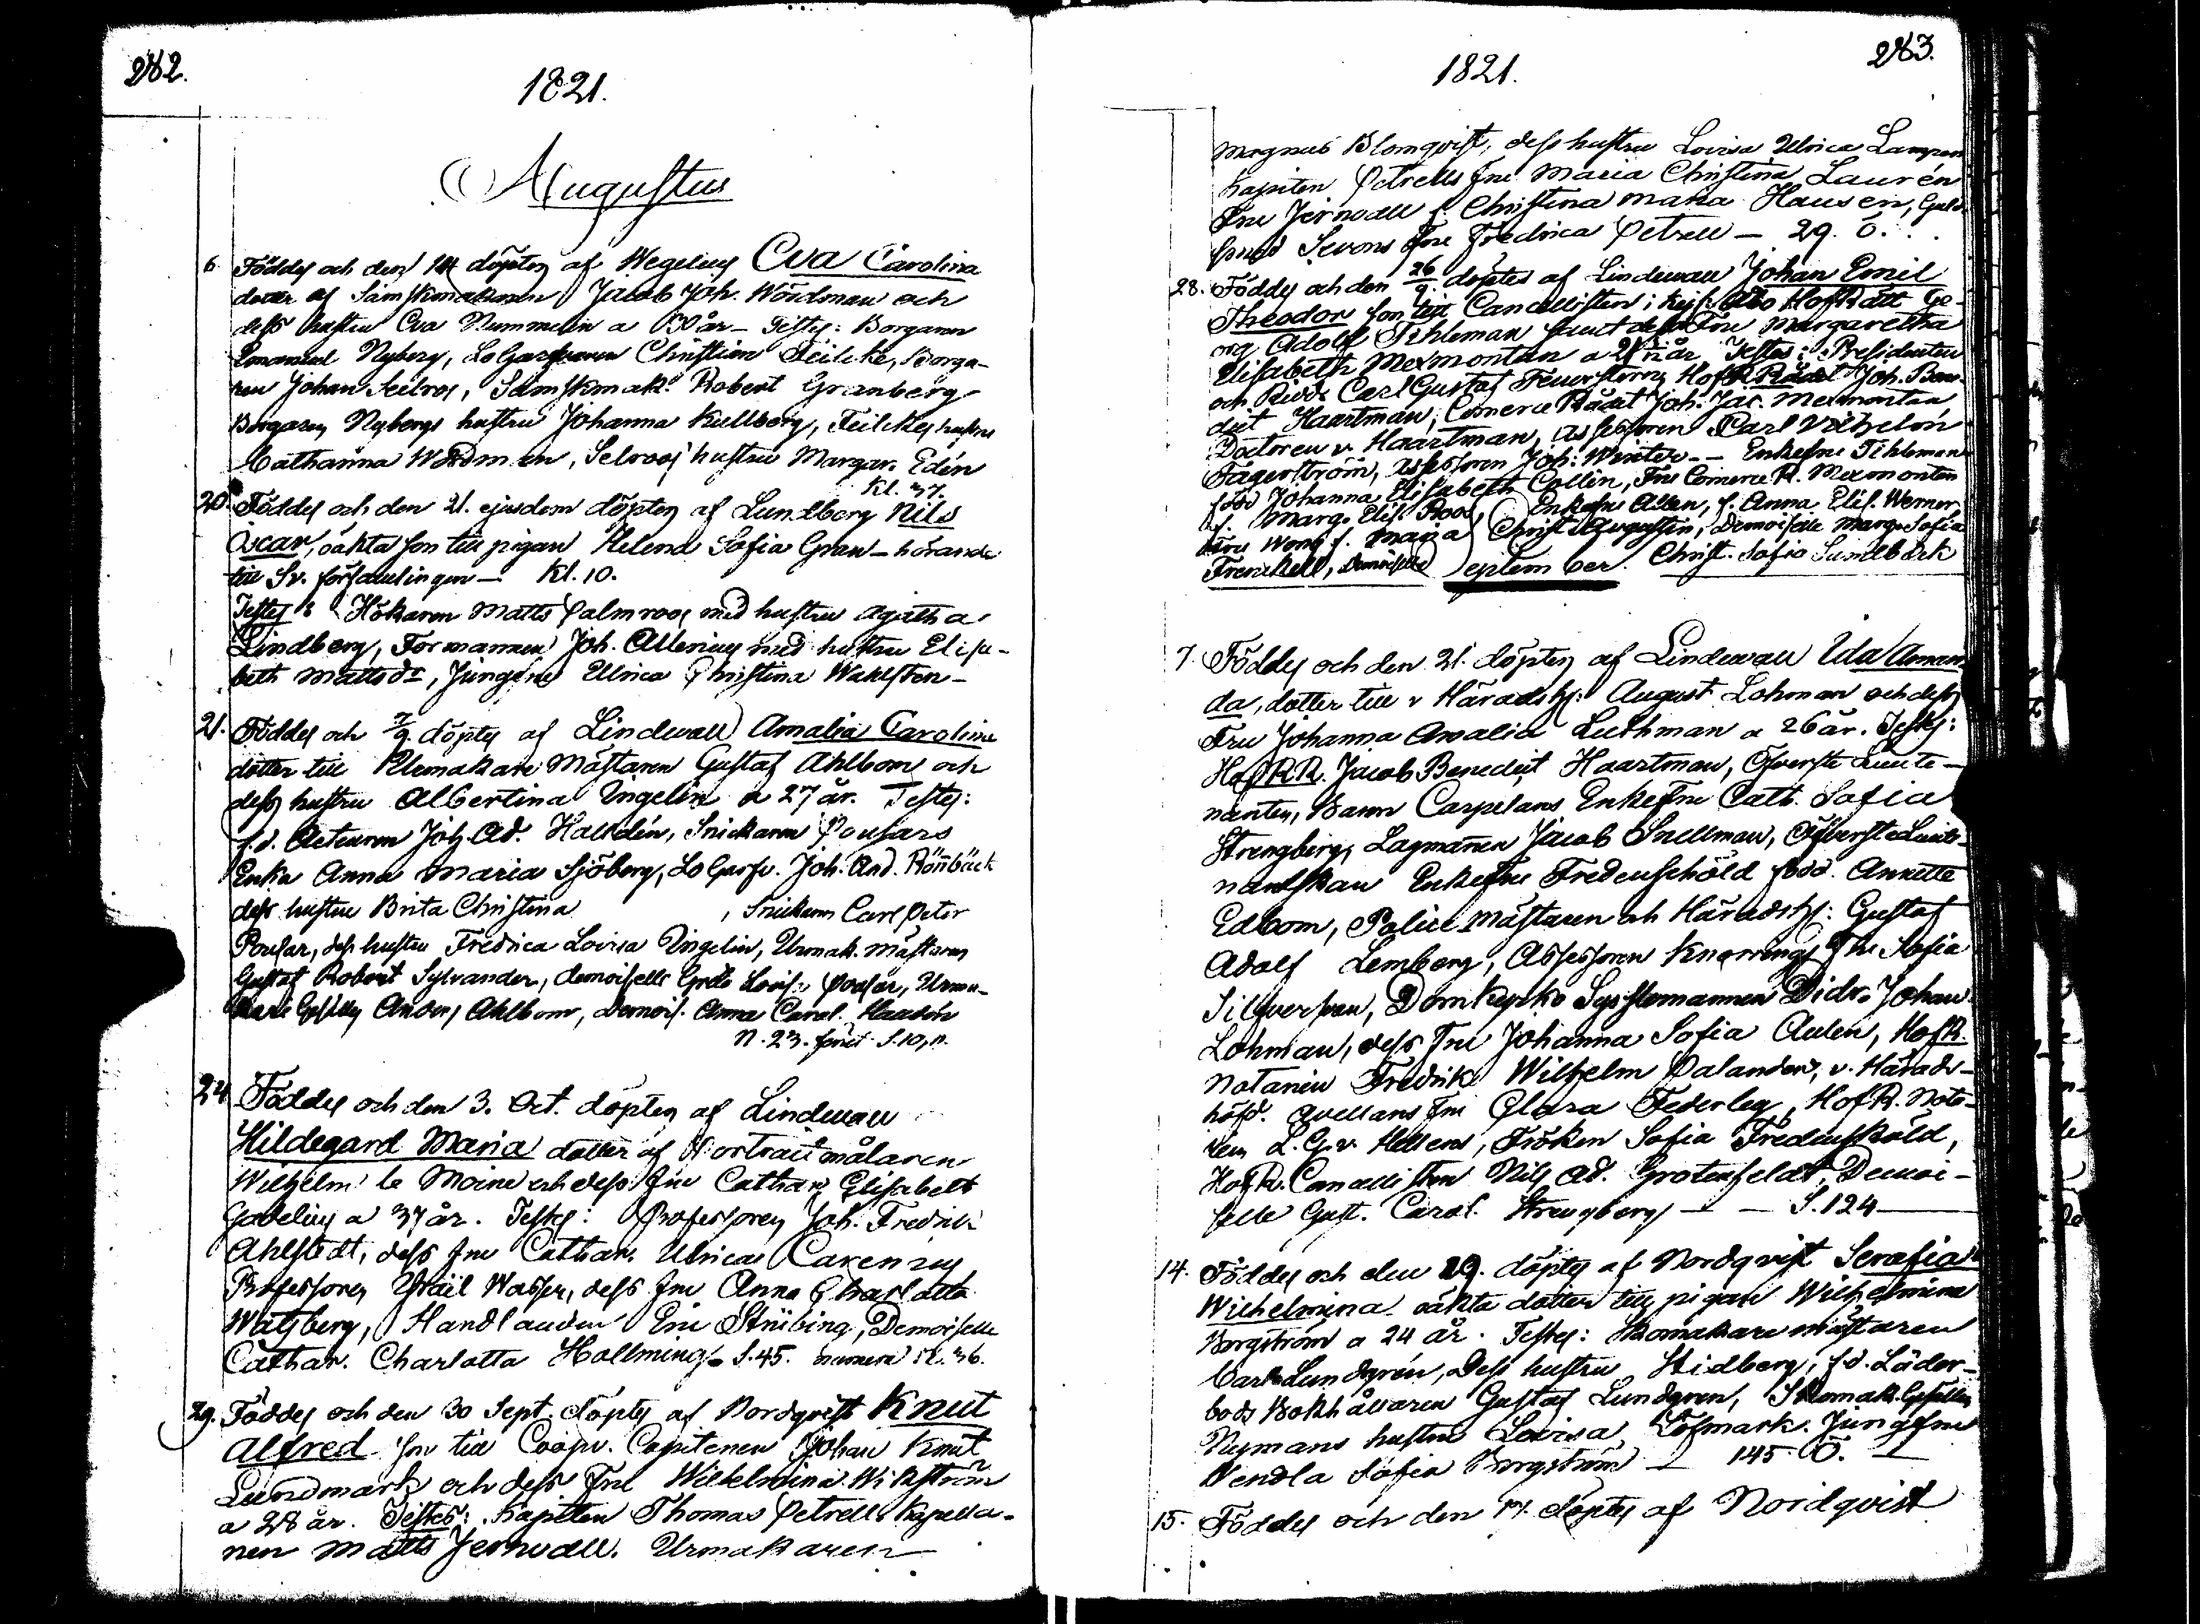 282.
1821.
Augustus
6. Föddes och den 14 döptes af Wegelius Eva Carolina
dotter af Sämskmakaren Jacob Joh. Nordman och
dess hustru Eva Nummelin a 30 år – Testes: Borgaren
Emanuel Nyberg, LoGarfvaren Christian Feilcke, Borga-
ren Johan Selroos, Sämskmak: Robert Granberg
Borgaren Nybergs hustru Johanna Kullberg, Feilckes hustru
Catharina Nordman, Selroos' hustru Margar. Edén
Kl. 37.
20. Föddes och den 21. ejusdem döptes af Lundberg Nils
Oscar, oäkta son till pigan Helena Sofia Gran – hörande
till Sv. församlingen – Kl. 10.
Testes: Hökaren Matts Palmroos med hustru Agatha
Lindberg, Formannen Joh. Allenius med hustru Elisa-
beth Mattsdr, Jungfru Ulrica Christina Wahlsten –
21. Föddes och 7/9 döptes af Lindewall Amalia Carolina
dotter till Urmakare Mästaren Gustaf Ahlbom och
dess hustru Albertina Ungelin a 27 år. Testes:
f.d. Acteuren Joh. Ad. Halldén, Snickaren Pousars
Enka Anna Maria Sjöberg, LoGarfv. Joh. And. Rönbäck
dess hustru Brita Christina , Snickaren Carl Peter
Pousar, dess hustru Fredrica Lovisa Ungelin, Urmak. mästaren
Gustaf Robert Sylvander, demoiselle Greta Lovisa Pousar, Urma-
kare Gesellen Anders Ahlbom, Demois. Anna Carol.
N. 23. förut S. 10, n.
24 Föddes och den 3. Oct. döptes af Lindewall
Hildegard Maria dotter af Portraitmålaren
Wilhelm le Moine och dess Fru Cathar. Elisabeth
Gadelius a 37 år. Testes: Professoren Joh. Fredrik
Ahlstedt, dess Fru Cathar. Ulrica Carenius
Professoren Israël Wasser, dess Fru Anna Charlotta
Watzberg, Handlanden Eric Strübing, Demoiselle
Cathar. Charlotta Hallming. S. 45. numera Kl. 36.
29. Föddes och den 30 Sept. döptes af Nordqvist Knut
Alfred son till Coopv. Capitenen Johan Knut
Lundmark och dess Fru Wilhelmina Wikström
a 28 år. Testes: Kapiten Thomas Petrell Kapella-
nen Matts Jernvall. Urmakaren
283.
1821.
Magnus Blomqvist, dess hustru Lovisa Ulrica Lampen
Kapiten Petrells Fru Maria Christina Laurén
Fru Jernvall f. Christina Maria Hausen, Guld-
smed Sevons Fru Fredrica Petrell – 29. Ö.
28. Föddes och den 26/9. döptes af Lindewall Johan Emil
Theodor son till Cancellisten i Kejs. Åbo HofRätt Ge-
org Adolf Tihleman samt dess Fru Margaretha
Elisabeth Mexmontan a år. Testes: Presidenten
och Ridd. Carl Gustaf Feuerstern, HofR Rådet Joh. Bene-
dict Haartman, Comerce Rådet Joh. Jac. Mexmontan
Doctoren v. Haartman, Assessoren Carl Vilhelm
Fägerström, Assessoren Joh: Winter. – Enkefru Tihleman
född Johanna Elisabeth Collin, Fru Comerce R. Mexmontan
f. Marg. Elis. Roos, Enkefru Allen, f. Anna Elis. Werner,
Fru f. Maria Christ. Augustin, Demoiselle Marg. Sofia
Frenckell, Demoiselle Christ. Sofia Sundbäck
September.
7. Föddes och den 21. döptes af Lindewall Ida Aman-
da, dotter till v Häradsh: August Lohman och dess
Fru Johanna Amalia Luthman a 26 år. Testes:
HofRR. Jacob Benedict Haartman, Öfverste Leute-
nanten, Baron Carpelans Enkefru Cath. Sofia
Strengberg, Lagmannen Jacob Snellman, ÖfversteLeut-
nantskan Enkefru Fredenschöld född Annette
Edbom, Police Mästaren och Häradsh: Gustaf
Adolf Lemberg, Assessoren Knorrings Fru Sofia
Silfversvan, Domkyrko Sysslomannen Didr. Johan
Lohman, dess Fru Johanna Sofia Aulen, HofR.
Notarien Fredrik Wilhelm Palander, v. Härads-
höfd. Avellans Fru Clara Federley, HofR. Nota-
rien L.G. v. Hellens, Fröken Sofia Fredenskiöld,
HofR. Cancellisten Nils Ad. Grotenfeldt, Demoi-
selle Gust. Carol. Strengberg – – S. 124
14. Föddes och den 29. döptes af Nordqvist Serafia
Wilhelmina oäkta dotter till pigan Wilhelmina
Borgström a 24 år. Testes: Skomakare mästaren
Carl Lundgrén, Dess hustru Hidberg, f.d. Läder-
bods Bokhållaren Gustaf Lundgren, Skomak. Gesellen
Nymans hustru Lovisa Löfmark. Jungfru
Vendla Sofia Borgström – 145 Ö. –
15. Föddes och den 17. döptes af Nordqvist